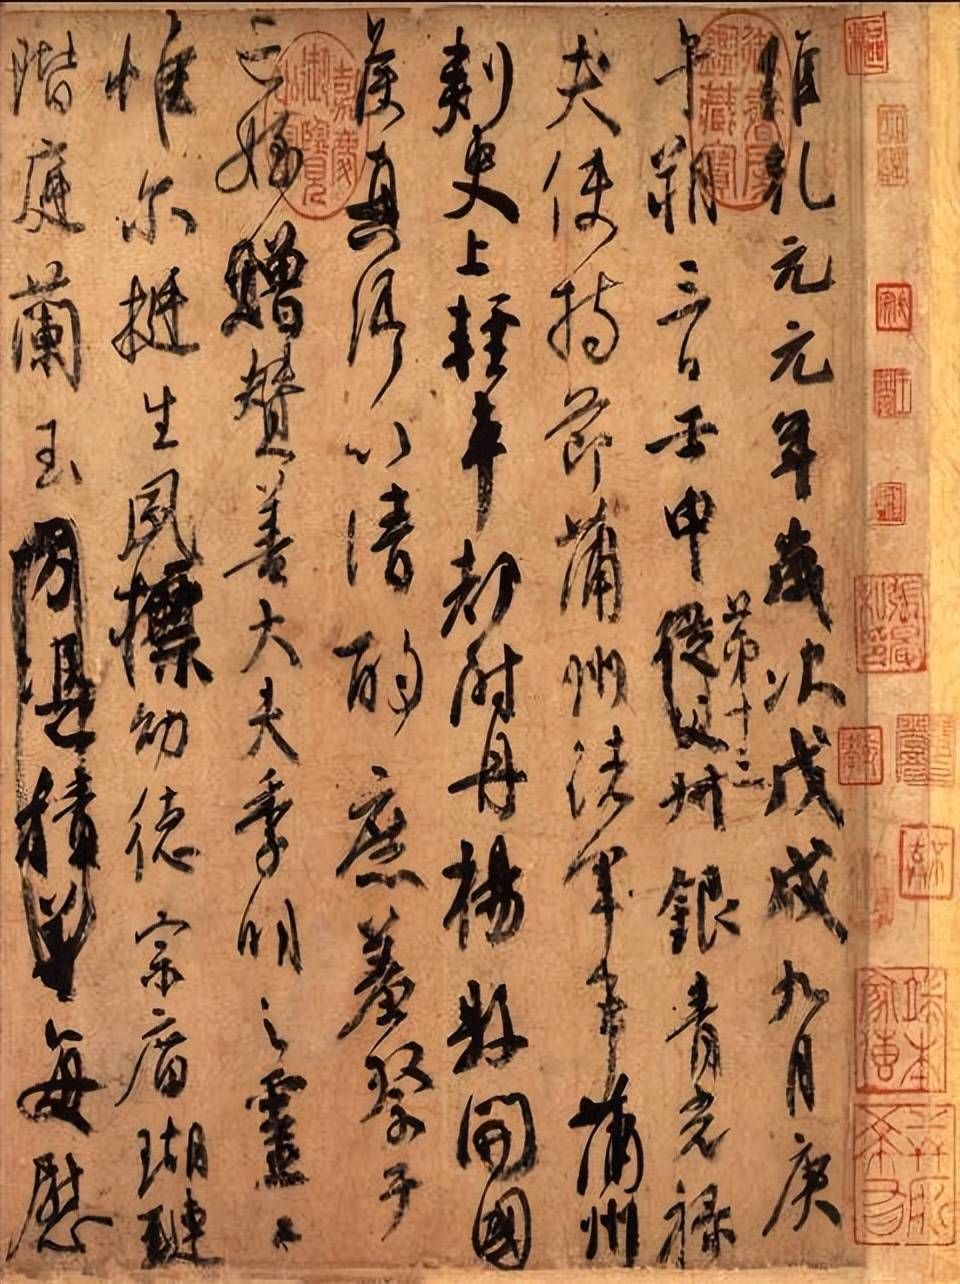 維乾元元年歲次戊戌九月庚
午朔三日壬申從父叔銀青光祿
第十三
夫使持節蒲州諸軍事蒲州
刺史上輕車都尉丹楊縣開國
侯真卿以清酌庶羞祭于
亡姪贈贊善大夫季明之靈曰
惟尔挺生夙標幼德宗廟瑚璉
階庭蘭玉方憑積善每慰
嘉慶御覽之寶